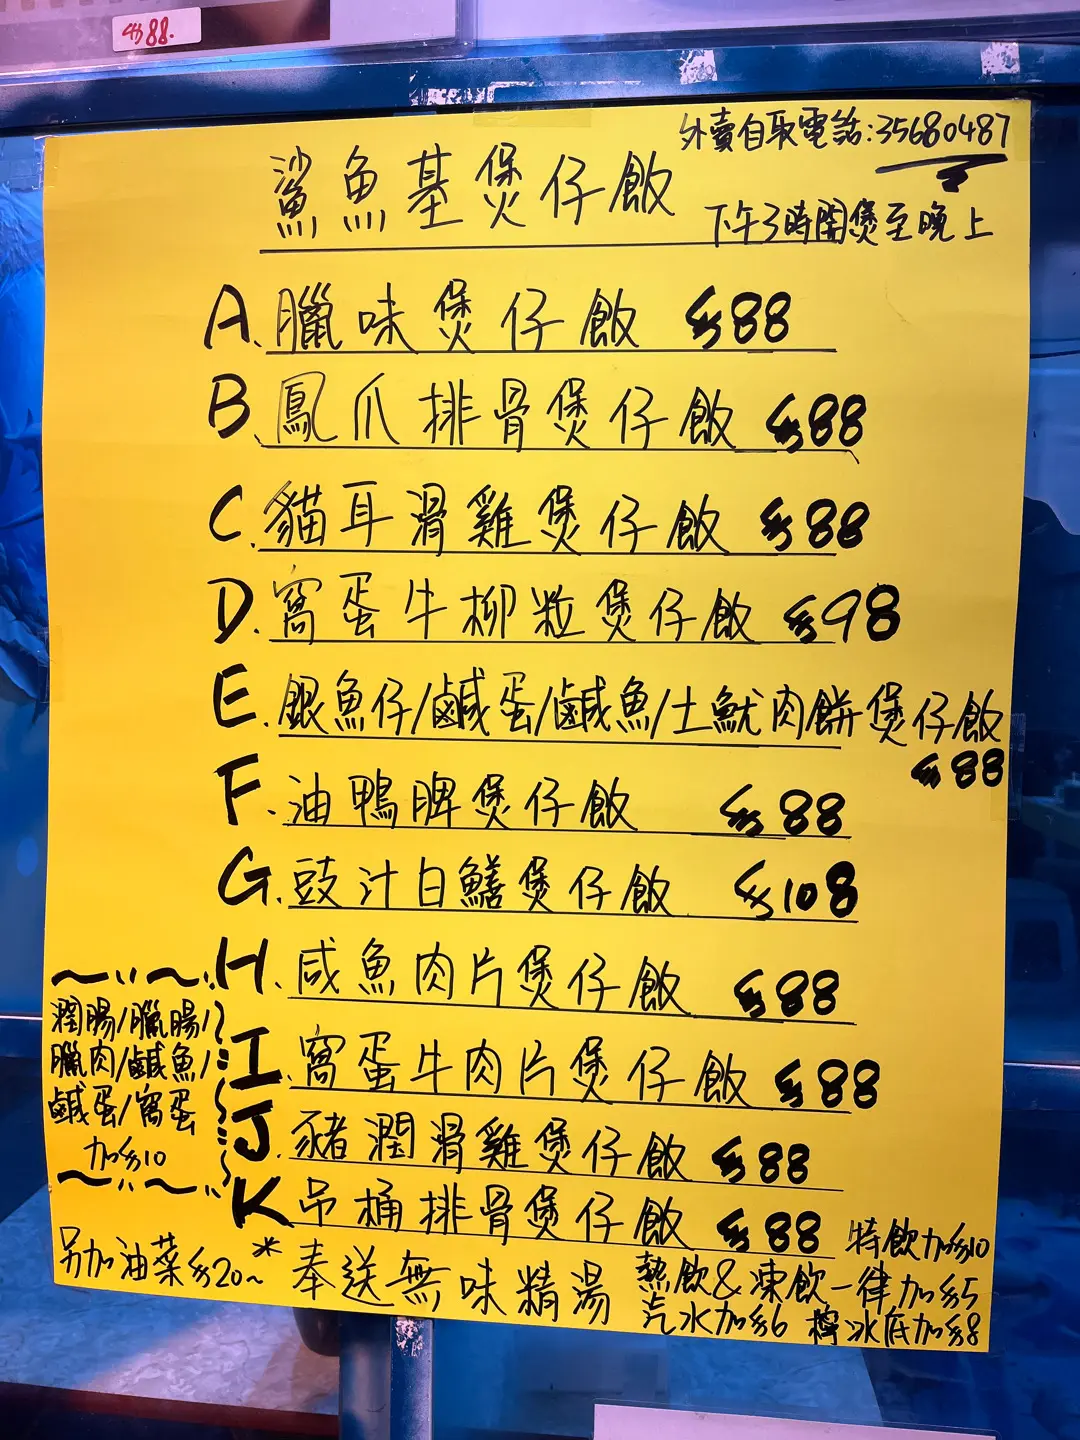 $88.
外賣自取電話:35680487
鯊魚基煲仔飯
下午3時開煲至晚上
A.臘味煲仔飯 $88
B.鳳爪排骨煲仔飯 $88
C.貓耳滑雞煲仔飯 $88
D.窩蛋牛柳粒煲仔飯 $98
E.銀魚仔/鹹蛋/鹹魚/土魷肉餅煲仔飯
$88
F.油鴨脾煲仔飯 $88
G.豉汁白鱔煲仔飯 $108
H.咸魚肉片煲仔飯 $88
I.窩蛋牛肉片煲仔飯 $88
J.豬潤滑雞煲仔飯 $88
K.吊桶排骨煲仔飯 $88
潤腸/臘腸/
臘肉/鹹魚/
鹹蛋/窩蛋
加$10
另加油菜$20~
*奉送無味精湯
特飲加$10
熱飲&凍飲一律加$5
汽水加$6 檸冰底加$8